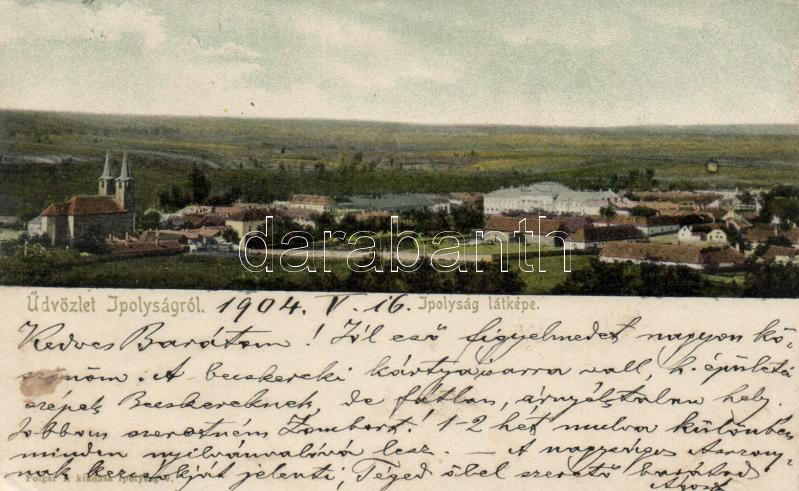 darabanth
Üdvözlet Ipolyságról. 1904. V. 16. Ipolyság látképe.
Kedves Barátom! Jól eső figyelmedet nagyon kö-
szönöm. A becskereki kártya arra vall, h. épületei
szépek Becskereknek de fátlan, árnyéktalan hely.
Jobban szeretném Zombort! 1-2 hét mulva különben
minden nyilvánvalóvá lesz. — A nagyságos Asszony-
nak kezét jelenti; Téged ölel szerető barátod
Polgár kiadása Ipolyság